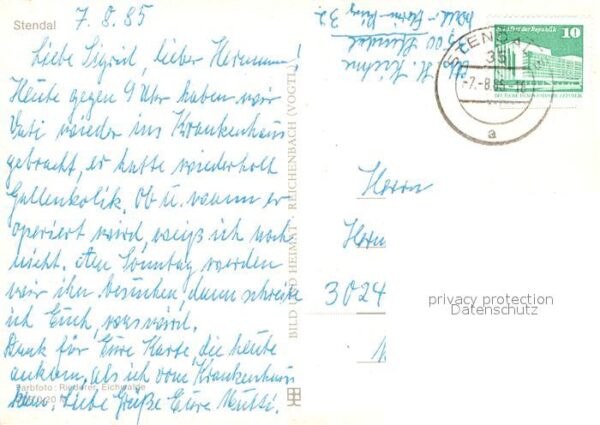 Stendal
7.8.85
Liebe Sigrid, lieber Hermann!
Heute gegen 9 Uhr haben wir
Vati wieder ins Krankenhaus
gebracht, er hatte wiederholt
Gallenkolik. Ob u. wann er
operiert wird, weiß ich noch
nicht. Am Sonntag werden
wir ihn besuchen, dann schreibe
ich Euch, was wird.
Dank für Eure Karte, die heute
ankam, als ich vom Krankenhaus
kam. Liebe Grüße Eure Mutti.
Farbfoto: Riederer, Eichwalde
BILD UND HEIMAT REICHENBACH (VOGTL)
3500 Stendal
STENDAL
35
-7.-8.85-16
a
Palast der Republik
10
DEUTSCHE DEMOKRATISCHE REPUBLIK
Herrn
Herm
3024
privacy protection
Datenschutz